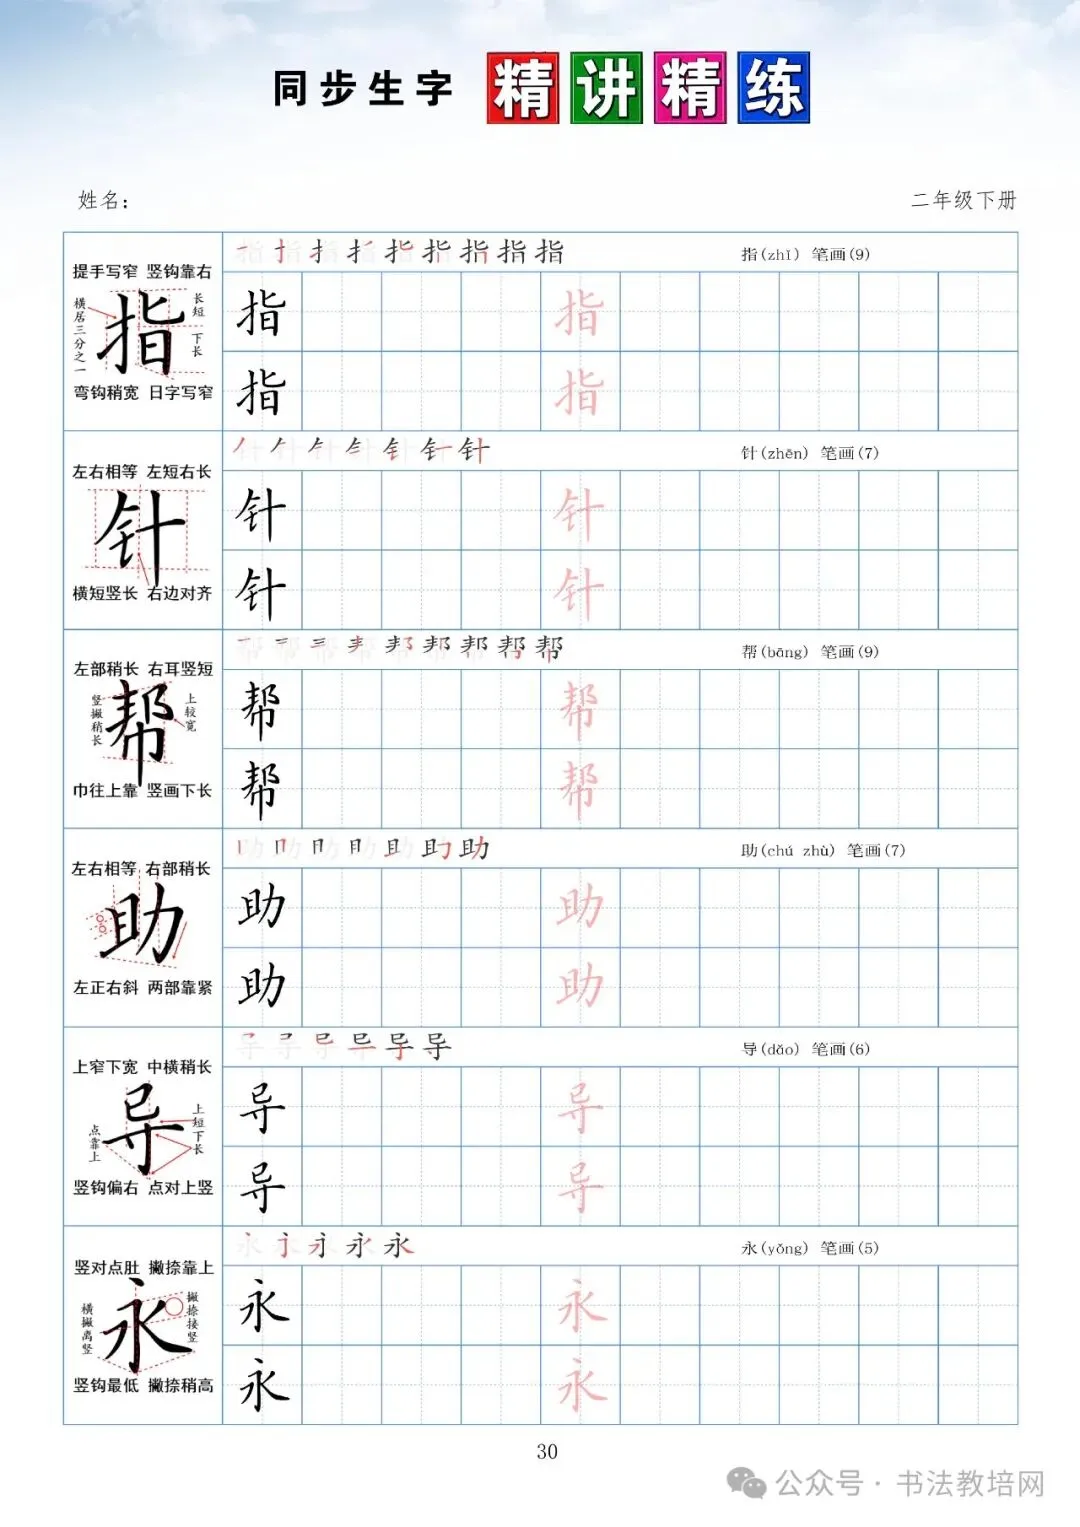 同步生字 精讲精练
姓名： 二年级下册
提手写窄 竖钩靠右
横居三分之一
指
长短
下长
弯钩稍宽 日字写窄
指(zhǐ) 笔画(9)
指 指
指 指
左右相等 左短右长
针
横短竖长 右边对齐
针(zhēn) 笔画(7)
针 针
针 针
左部稍长 右耳竖短
竖撇稍长
帮
上较宽
巾往上靠 竖画下长
帮(bāng) 笔画(9)
帮 帮
帮 帮
左右相等 右部稍长
助
左正右斜 两部靠紧
助(chú zhù) 笔画(7)
助 助
助 助
上窄下宽 中横稍长
点靠上
导
上短下长
竖钩偏右 点对上竖
导(dǎo) 笔画(6)
导 导
导 导
竖对点肚 撇捺靠上
横撇离竖
永
撇捺接竖
竖钩最低 撇捺稍高
永(yǒng) 笔画(5)
永 永
永 永
30
公众号·书法教培网